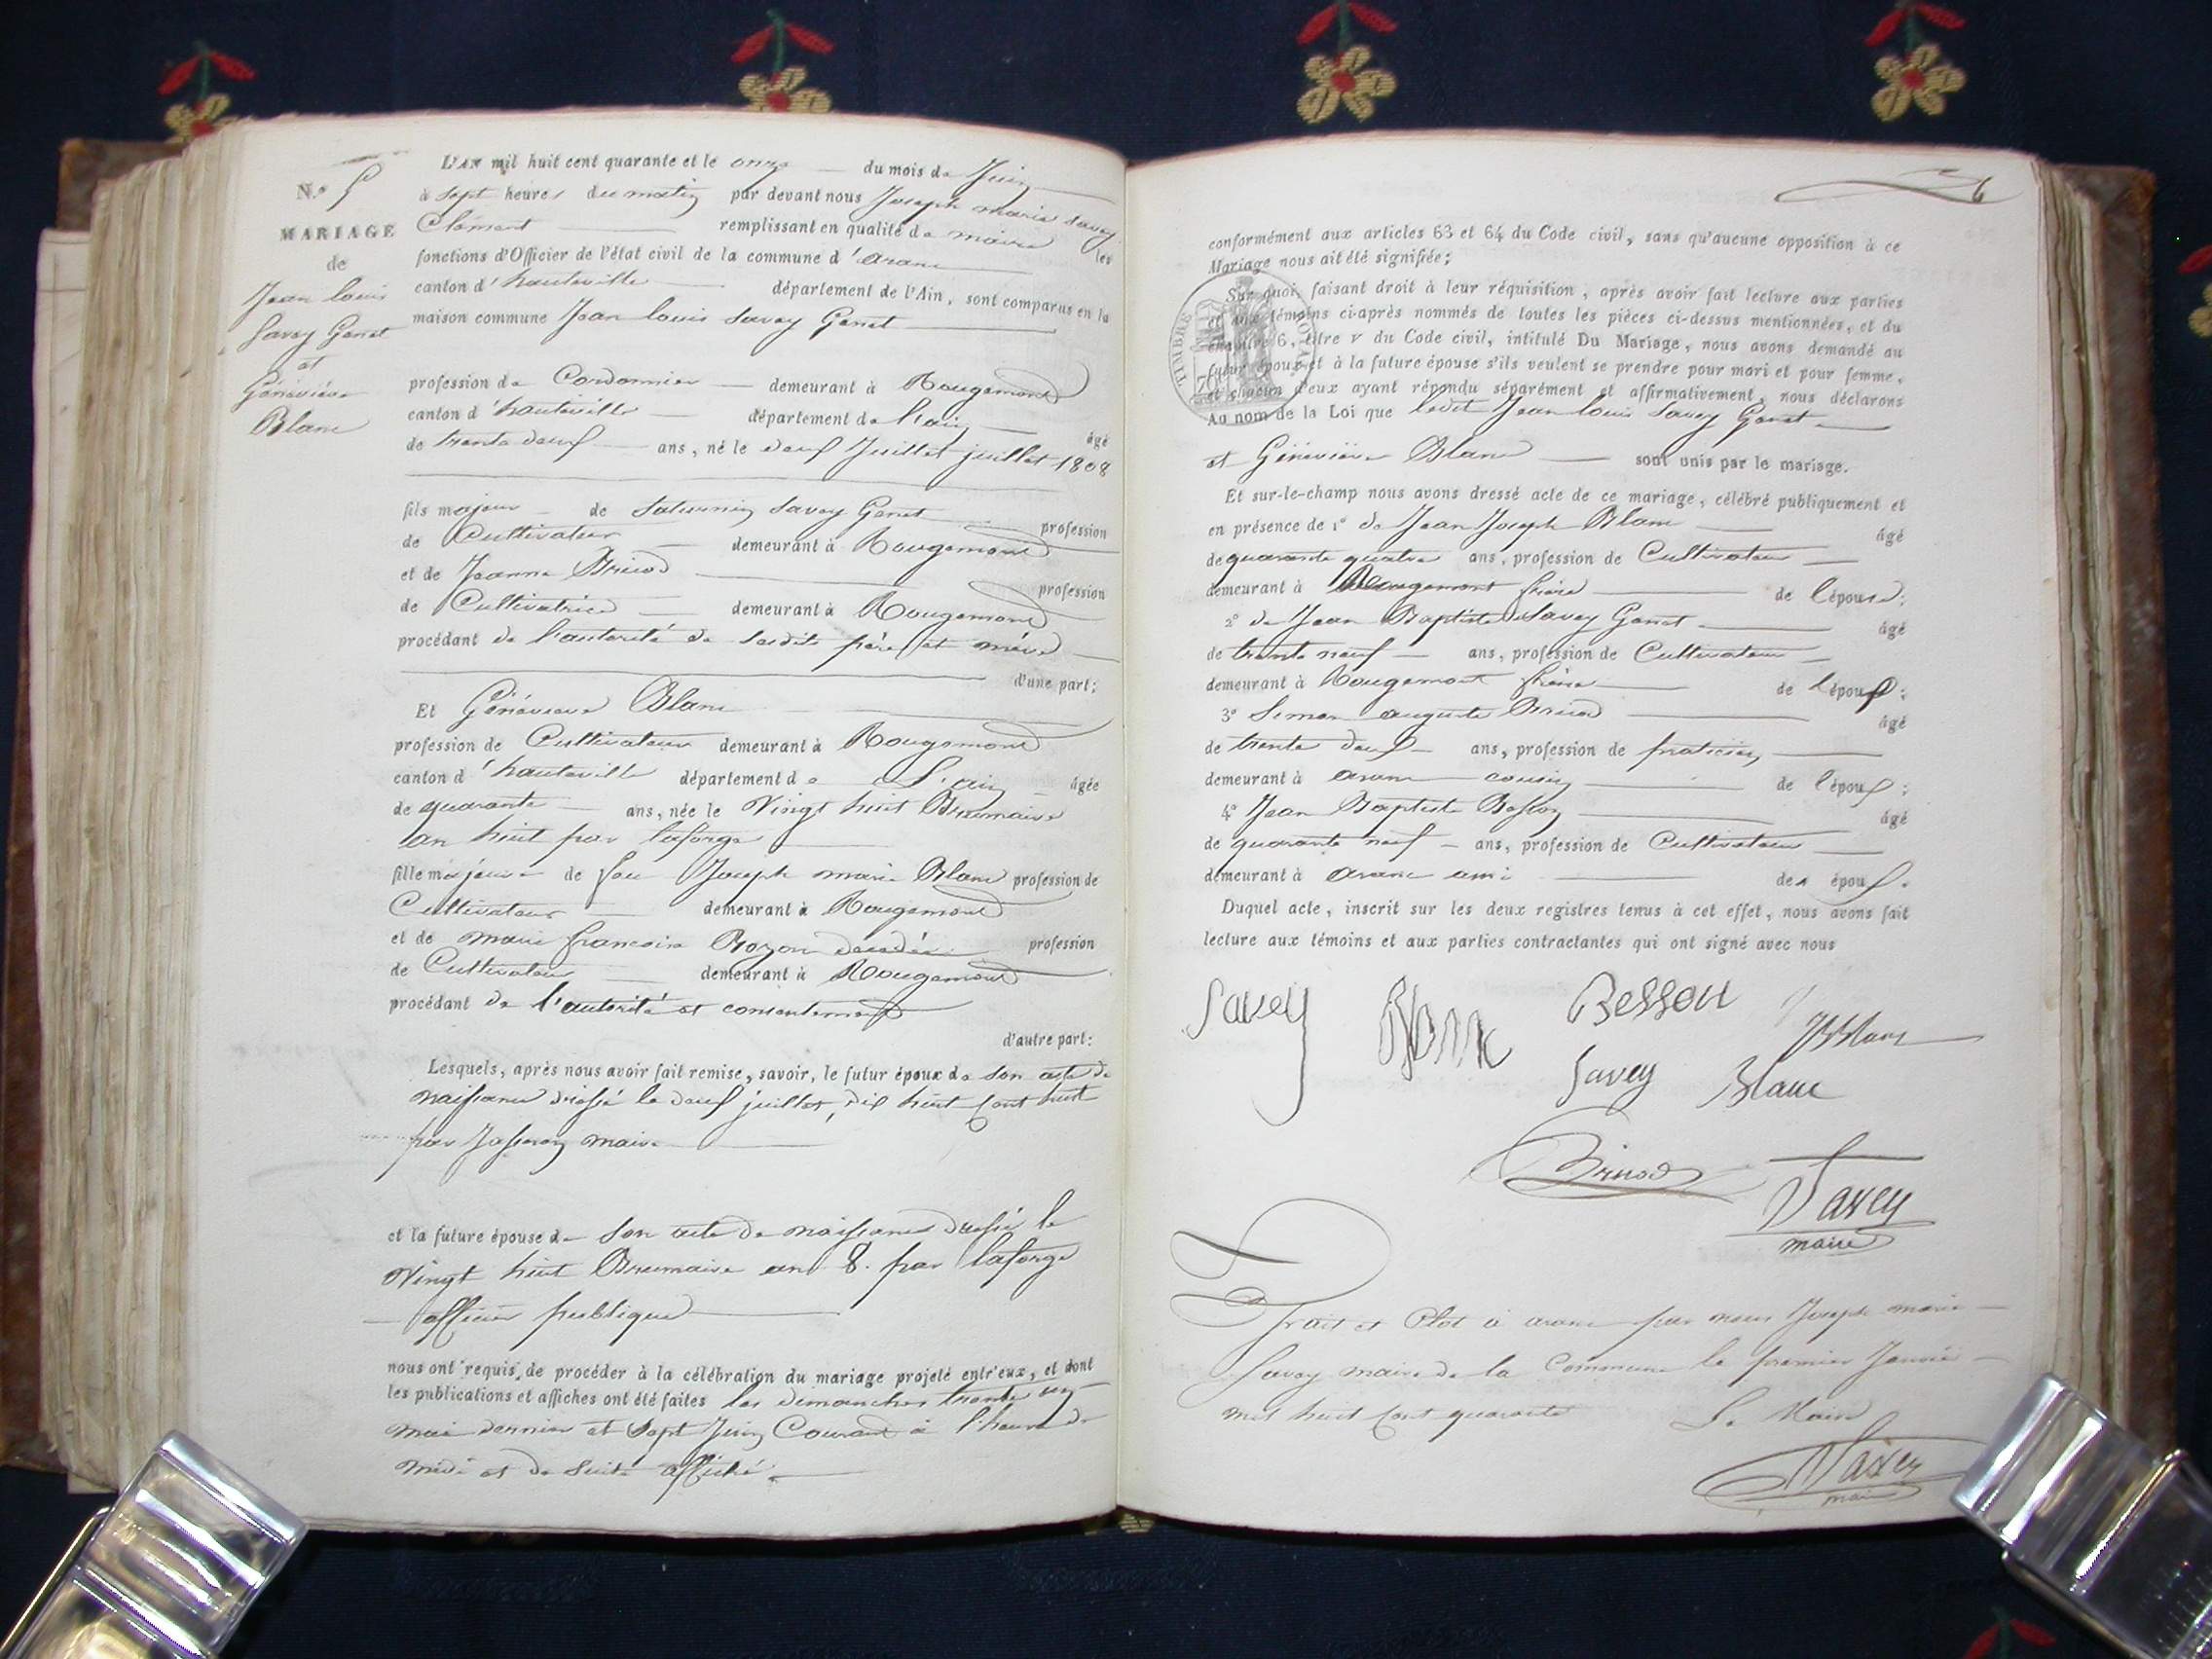 N.º 5
MARIAGE
de
Jean louis
Savey Genet
et
Généviève
Blanc
L'AN mil huit cent quarante et le onze du mois de Juin
à sept heures du matin par devant nous Joseph marie Savey
Clément remplissant en qualité de maire les
fonctions d'Officier de l'état civil de la commune d'aranc
canton d'hauteville département de l'Ain, sont comparus en la
maison commune Jean louis Savey Genet
profession de Cordonnier demeurant à Rougemont
canton d'hauteville département de l'ain âgé
de trente deux ans, né le deux Juillet juillet 1808
fils majeur de Saturnin Savey Genet profession
de Cultivateur demeurant à Rougemont
et de Jeanne Brucod profession
de Cultivatrice demeurant à Rougemont
procédant de l'autorité de sesdits père et mère
d'une part;
Et Généviève Blanc
profession de Cultivateur demeurant à Rougemont
canton d'hauteville département de L'ain âgée
de quarante ans, née le Vingt huit Brumaire
an huit par laforge
fille majeure de feu Joseph marie Blanc profession de
Cultivateur demeurant à Rougemont
et de marie francoise Bozon décédée profession
de Cultivateur demeurant à Rougemont
procédant de l'autorité et consentement
d'autre part:
Lesquels, après nous avoir fait remise, savoir, le futur époux de son acte de
naissance dressé le deux juillet, dix huit cent huit
par maire
et la future épouse de son acte de naissance dressé le
Vingt huit Brumaire an 8. par laforge
officier publique
nous ont requis de procéder à la célébration du mariage projeté entr'eux, et dont
les publications et affiches ont été faites les dimanches trente un
mai dernier et Sept Juin Courant à l'heure de
midi et de suite affiché.
6
conformément aux articles 63 et 64 du Code civil, sans qu'aucune opposition à ce
Mariage nous ait été signifiée;
Sur quoi, faisant droit à leur réquisition, après avoir fait lecture aux parties
et aux témoins ci-après nommés de toutes les pièces ci-dessus mentionnées, et du
chapitre 6, titre V du Code civil, intitulé Du Mariage, nous avons demandé au
futur époux et à la future épouse s'ils veulent se prendre pour mari et pour femme,
et chacun d'eux ayant répondu séparément et affirmativement, nous déclarons
Au nom de la Loi que ledit Jean louis Savey Genet
TIMBRE ROYAL
et Généviève Blanc sont unis par le mariage.
Et sur-le-champ nous avons dressé acte de ce mariage, célébré publiquement et
en présence de 1º de Jean Joseph Blanc âgé
de quarante quatre ans, profession de Cultivateur
demeurant à Rougemont frère de l'épouse;
2º de Jean Baptiste Savey Genet âgé
de trente neuf ans, profession de Cultivateur
demeurant à Rougemont frère de l'époux;
3º Simon auguste Brucod âgé
de trente deux ans, profession de praticien
demeurant à aranc cousin de l'époux;
4º Jean Baptiste Besson âgé
de quarante neuf ans, profession de Cultivateur
demeurant à aranc ami des époux.
Duquel acte, inscrit sur les deux registres tenus à cet effet, nous avons fait
lecture aux témoins et aux parties contractantes qui ont signé avec nous
Savey Blanc Besson JJBlanc
Savey Blanc
Savey
maire
fait et Clot à aranc par nous Joseph marie
Savey maire de la Commune le premier Janvier
mil huit cent quarante Le Maire
Savey
maire